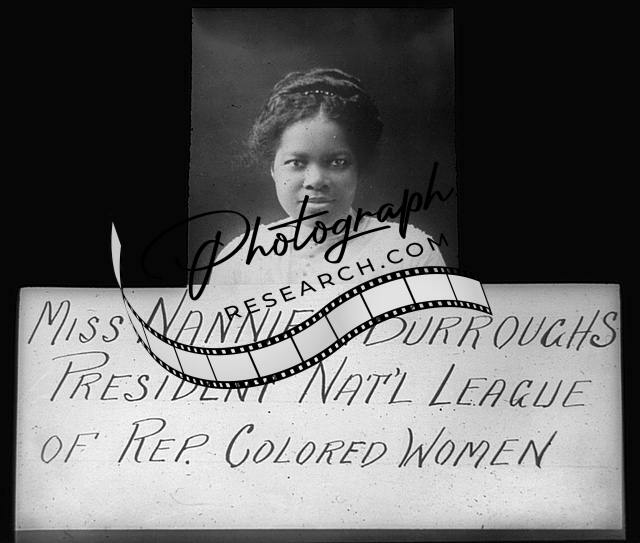 Photograph
RESEARCH.COM
MISS NANNIE BURROUGHS
PRESIDENT NAT'L LEAGUE
OF REP. COLORED WOMEN